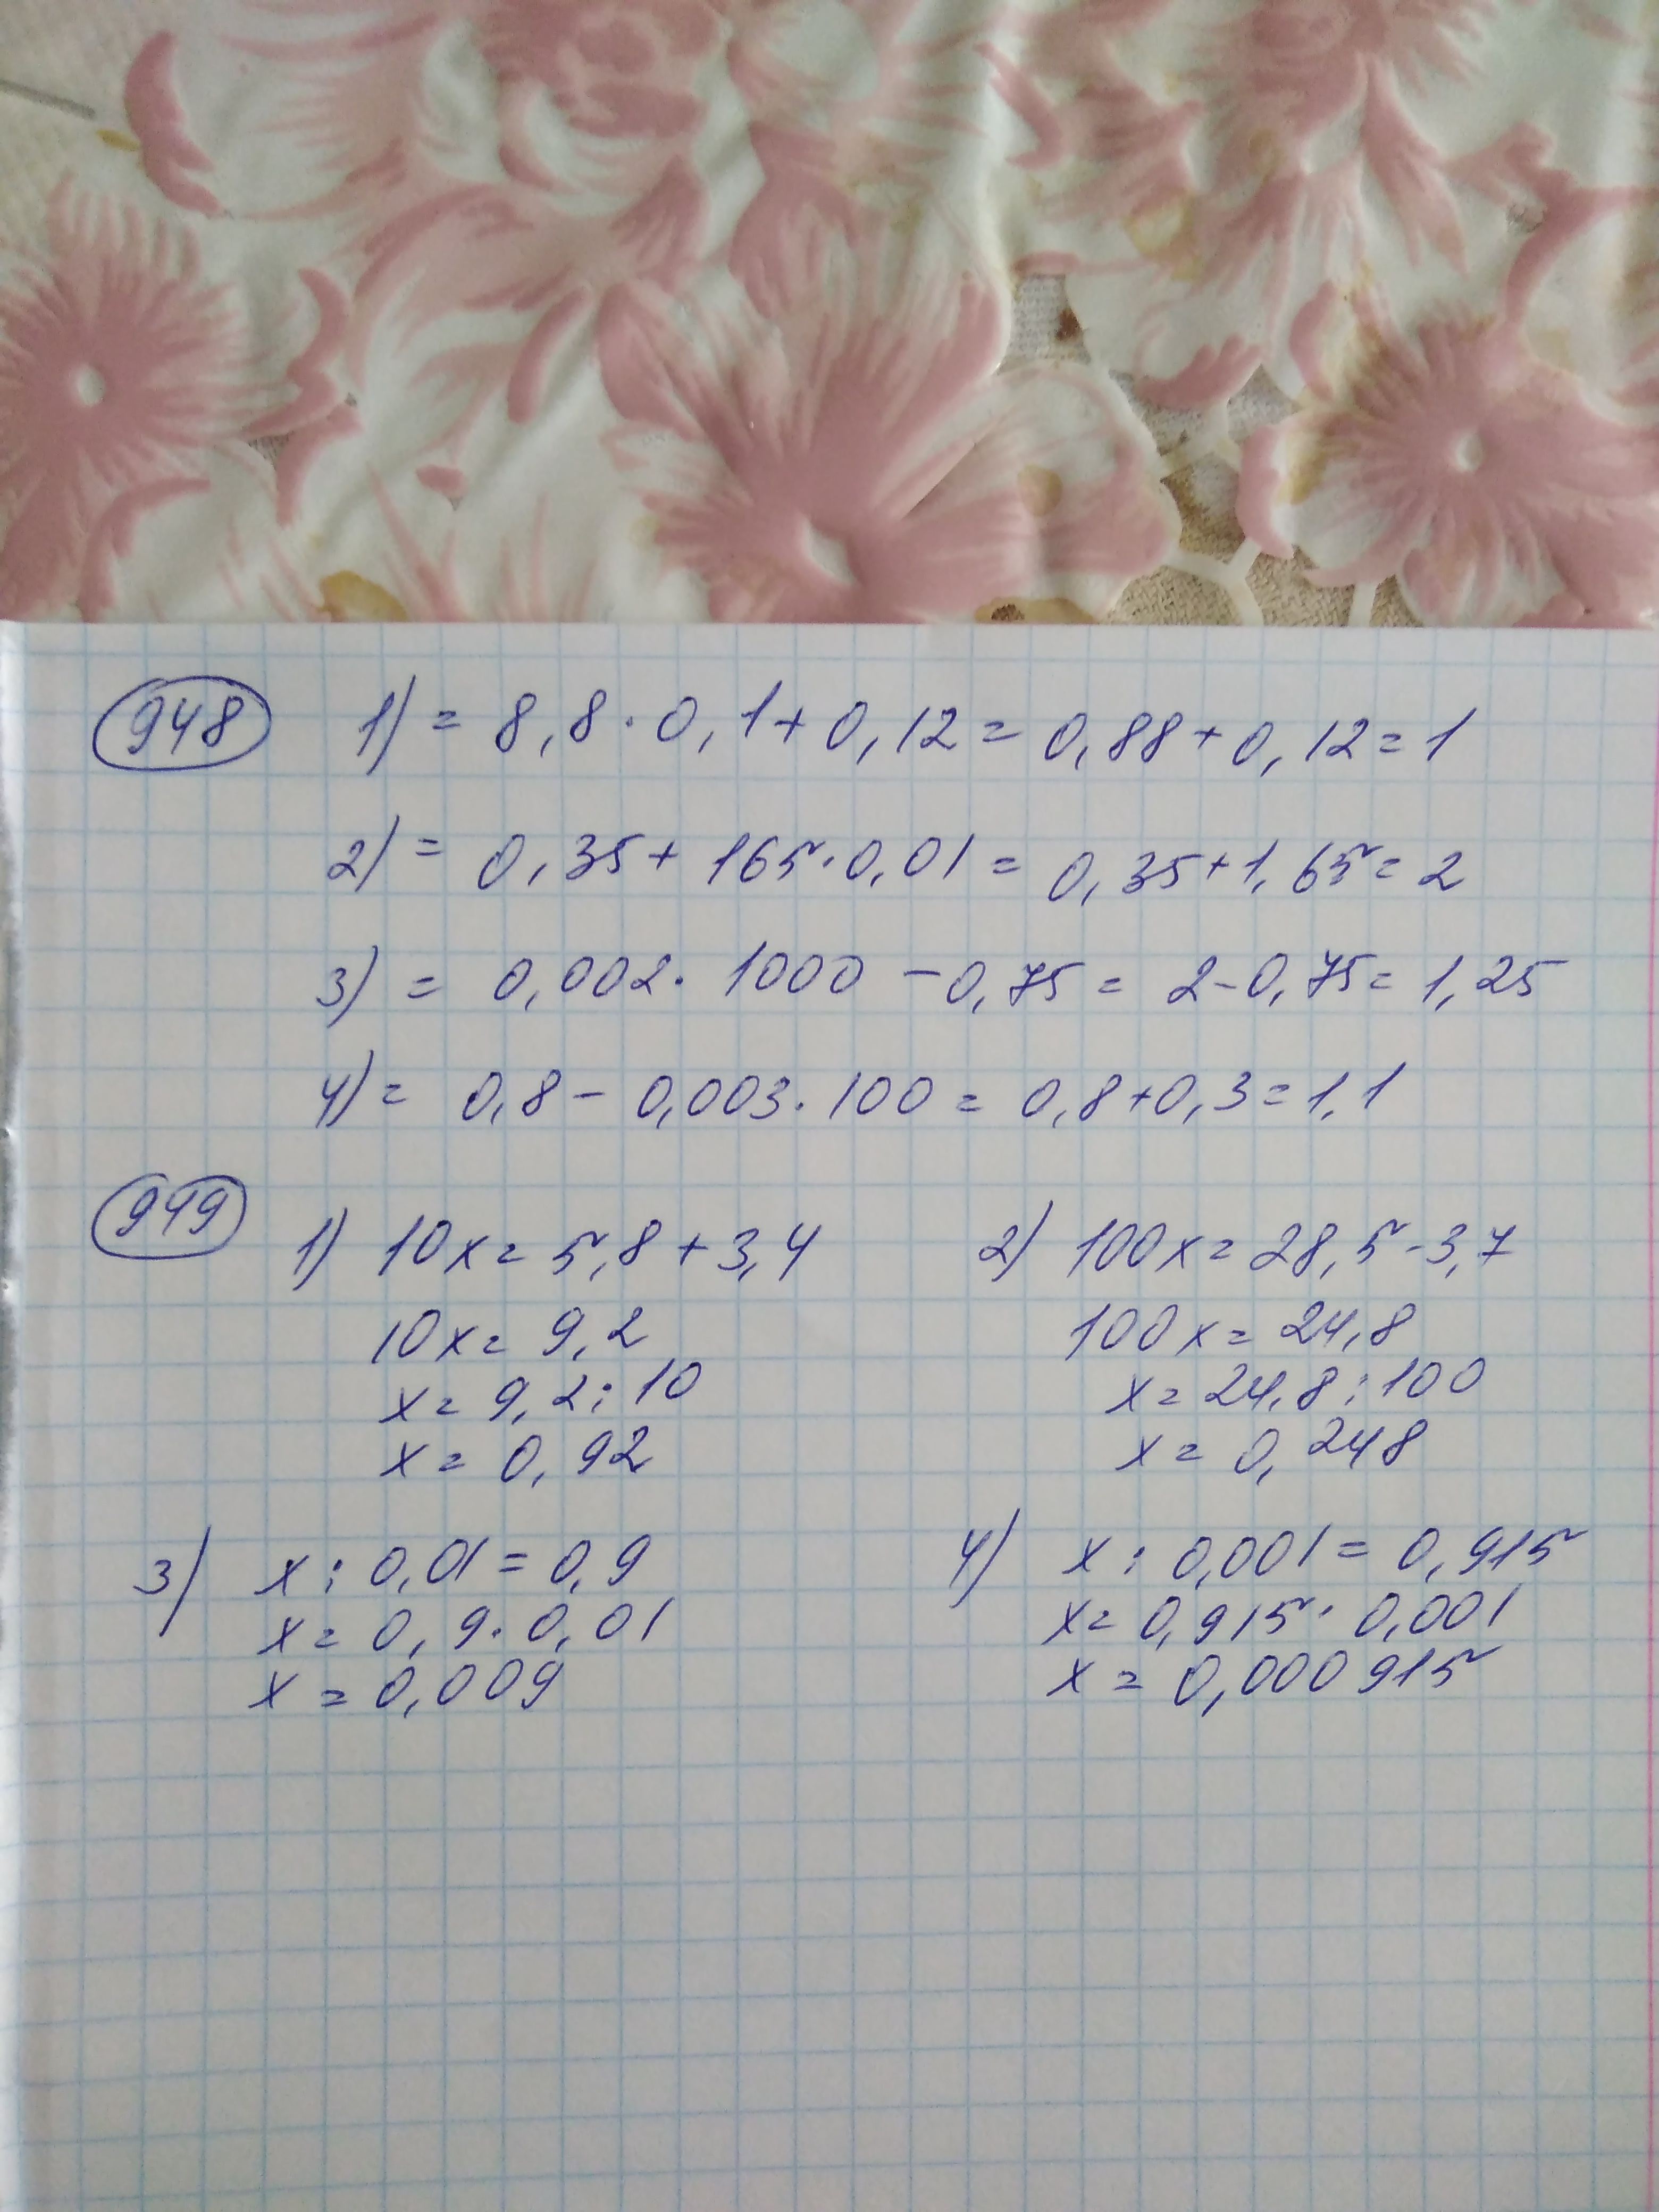 948 1) = 8,8 · 0,1 + 0,12 = 0,88 + 0,12 = 1
2) = 0,35 + 165 · 0,01 = 0,35 + 1,65 = 2
3) = 0,002 · 1000 - 0,75 = 2 - 0,75 = 1,25
4) = 0,8 - 0,003 · 100 = 0,8 + 0,3 = 1,1
949 1) 10x = 5,8 + 3,4
10x = 9,2
x = 9,2 : 10
x = 0,92
2) 100x = 28,5 - 3,7
100x = 24,8
x = 24,8 : 100
x = 0,248
3) x : 0,01 = 0,9
x = 0,9 · 0,01
x = 0,009
4) x : 0,001 = 0,915
x = 0,915 · 0,001
x = 0,000915